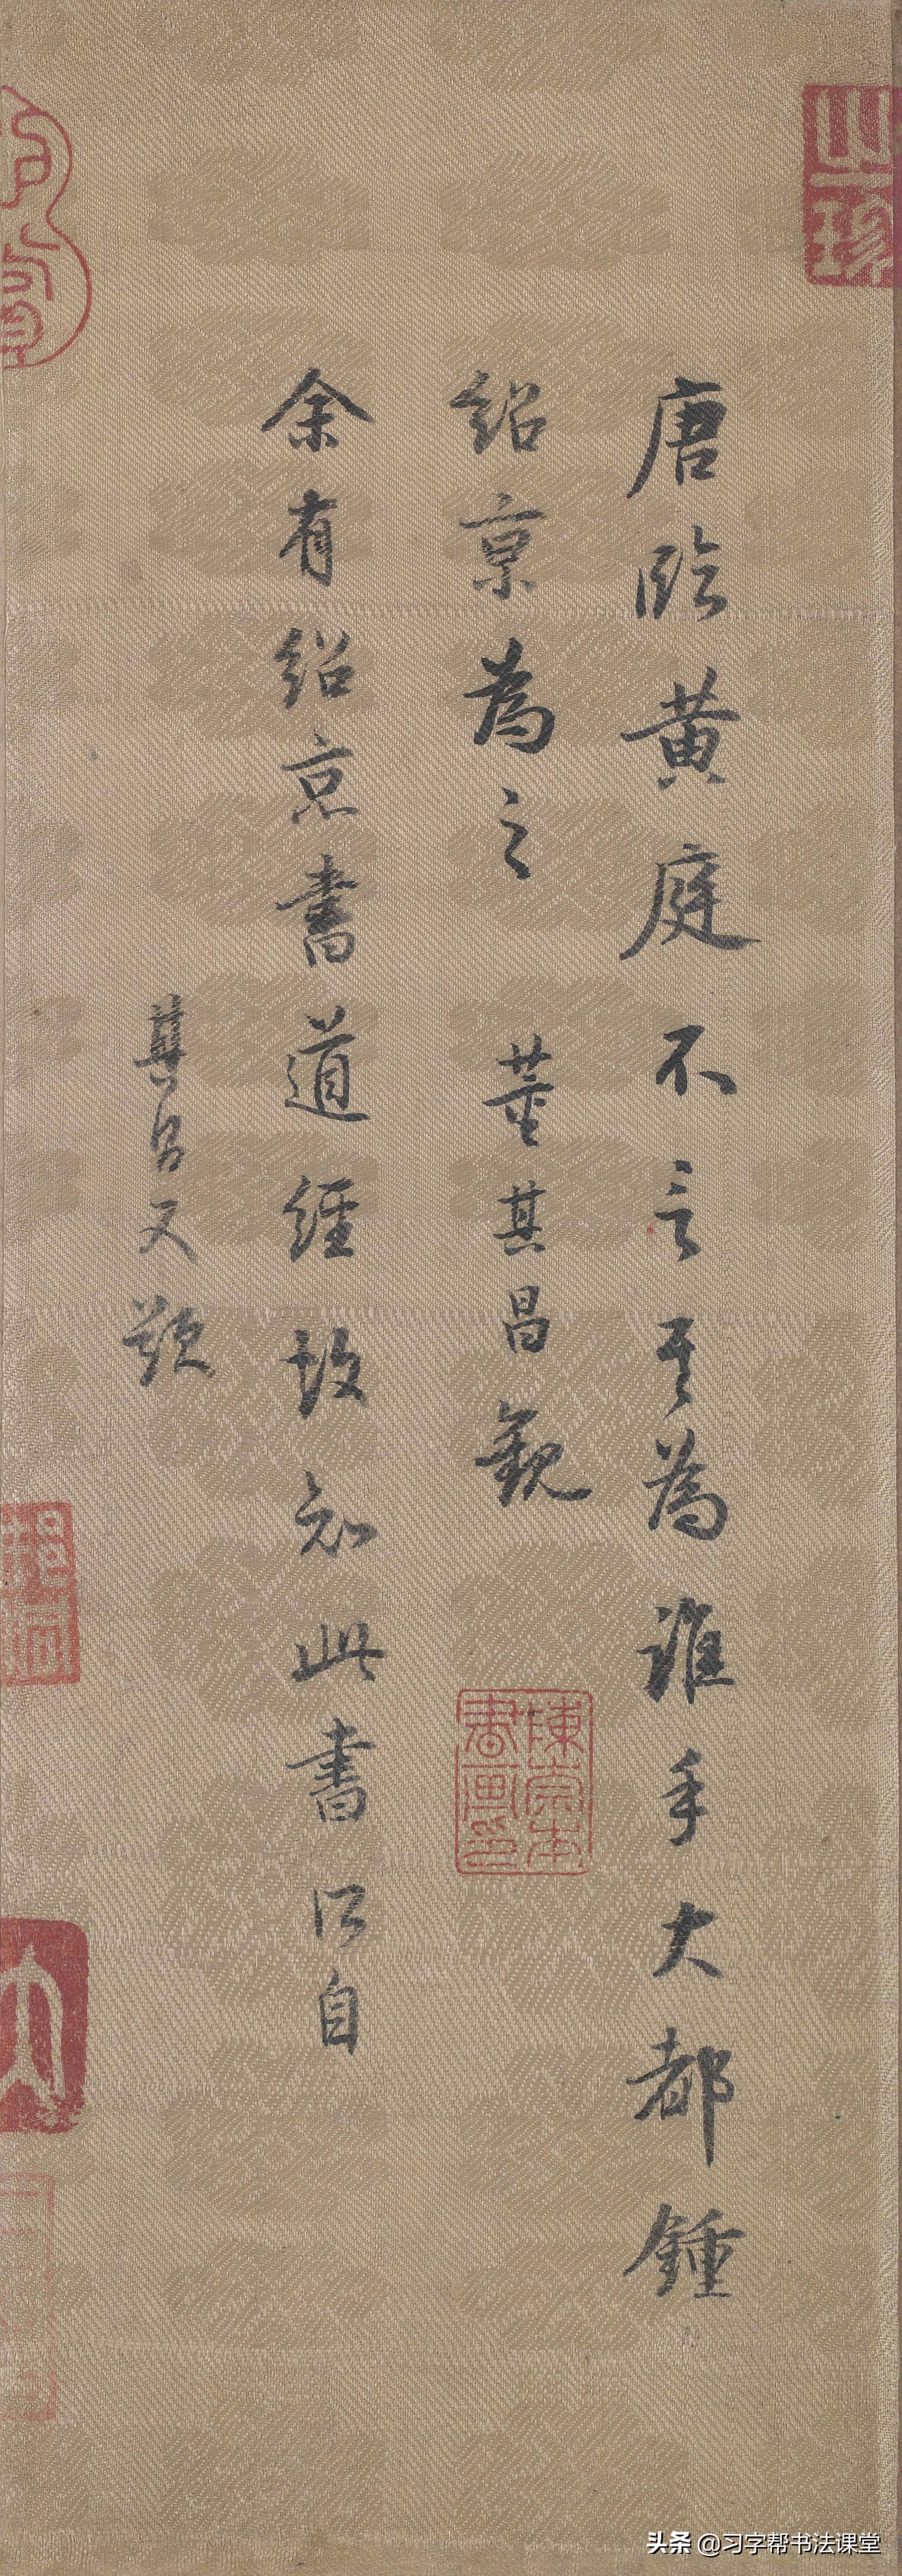 唐臨黄庭不言其為誰手大都鍾
紹京為之 董其昌觀
余有紹京書道經故知此書所自
其昌又題
之珍
陳崇本書画印
头条 @习字帮书法课堂